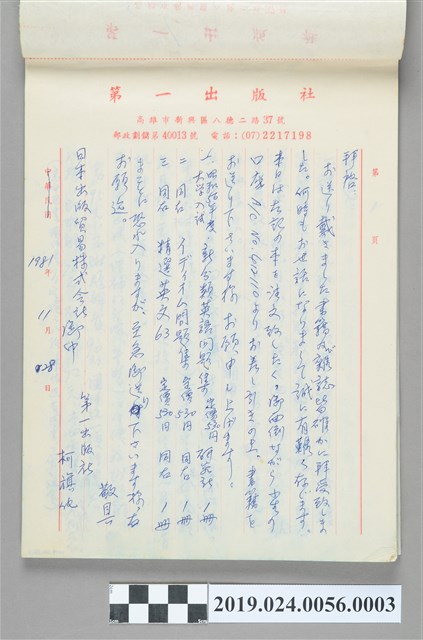 第一出版社
高雄市新興區八德二路37號
郵政劃撥第40013號 電話：(07)2217198
第 頁
拝啓、
お送り戴きました書籍及雑誌皆確かに拝受致しま
した。何時もお世話になりまして誠に有難く存じます。
本日は左記の本を注文致したく、御面倒ながら
口座 よりお差し引きの上、書籍を
お送り下さいます様お願申し上げます：
一、昭和56年度 大学入試 新分類英語問題集 定価530円 研究社 1冊
二、同右 イディオム問題集 定価530円 同右 1冊
三、同右 精選英文63 定価530円 同右 1冊
まことに恐れ入りますが、至急御送り下さいます様、右
お願迄。
敬具
日本出版貿易株式会社御中
第一出版社
柯旗化
中華民國 1981 年 11 月 28 日
2019.024.0056.0003